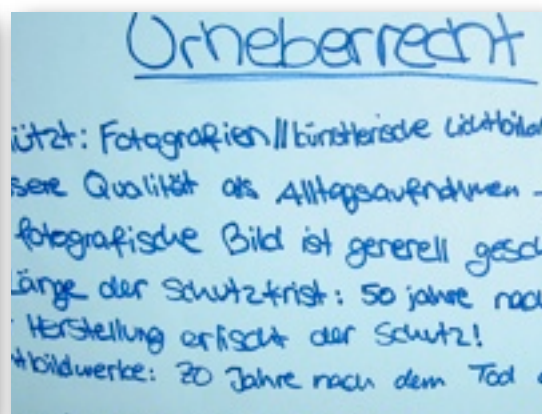 Urheberrecht
ützt: Fotografien || künstlerische Lichtbild
sere Qualität als Alltagsaufnahmen -
fotografische Bild ist generell gesch
Länge der Schutzfrist: 50 jahre nac
Herstellung erlischt der Schutz!
tbildwerke: 70 Jahre nach dem Tod